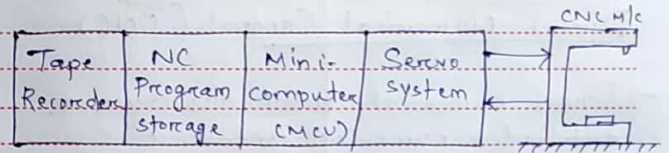 CNC M/C
Tape
Recorder
NC
Program
storage
Mini-
computer
(MCU)
Servo
system